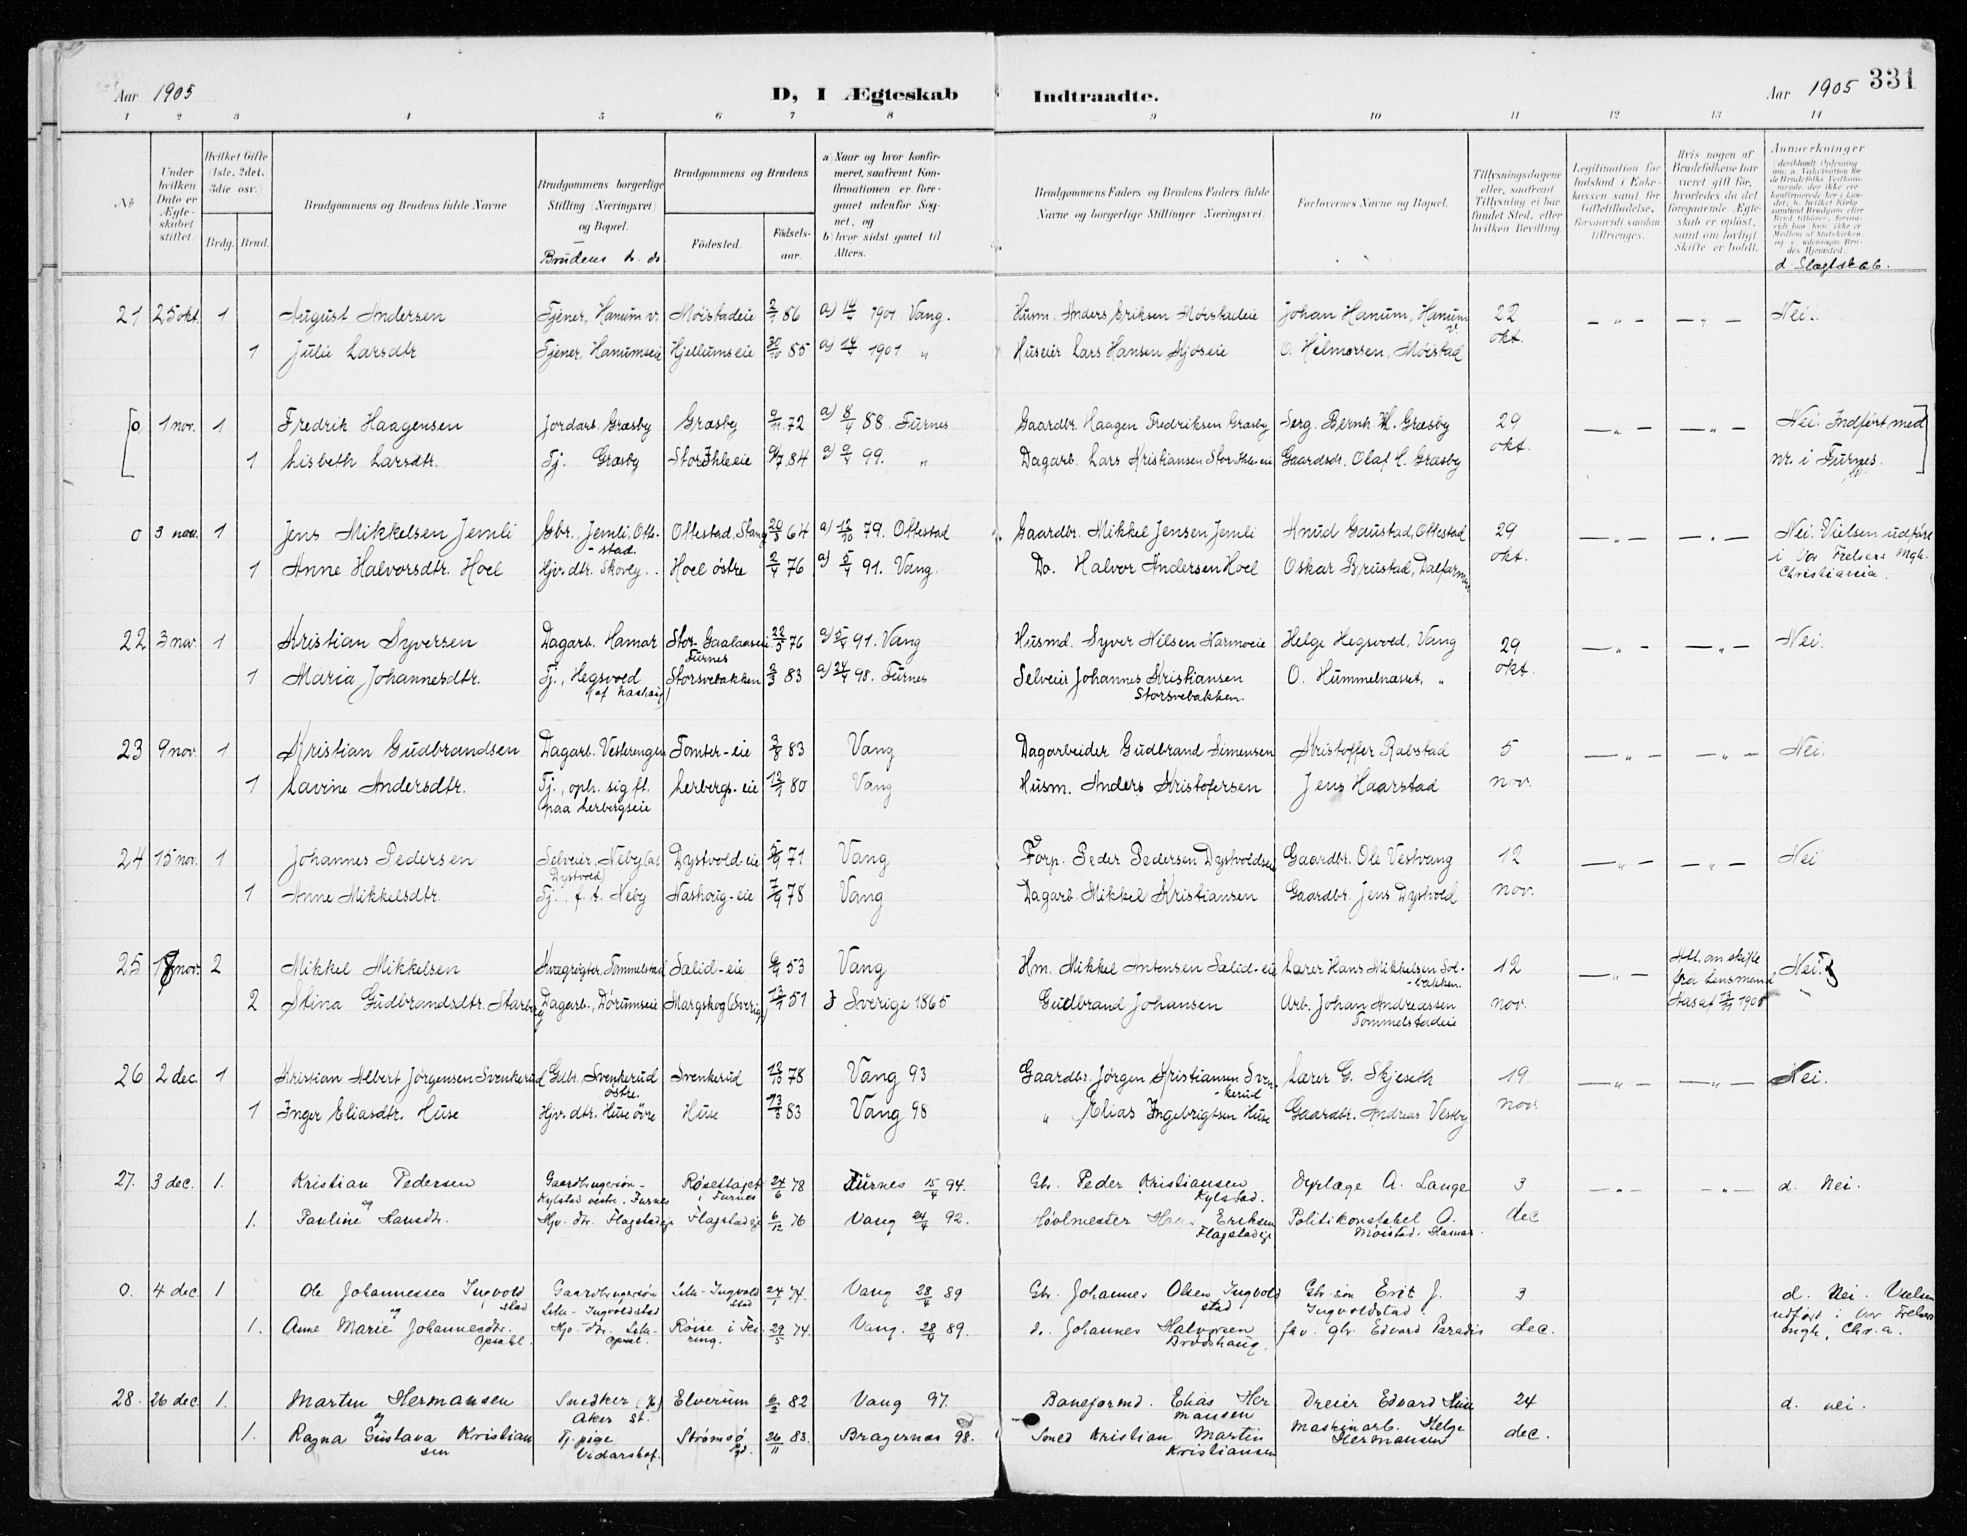 Aar 1905
D, I Ægteskab Indtraadte.
Aar 1905 331
1 2 3 4 5 6 7 8 9 10 11 12 13 14
No
Under hvilken Dato er Ægteskabet stiftet.
Hvilket Gifte (1ste, 2det, 3die osv.)
Brdg. Brud.
Brudgommens og Brudens fulde Navne
Brudgommens borgerlige Stilling (Næringsvei) og Bopæl.
Brudens do. do
Brudgommens og Brudens
Fødested.
Fødselsaar.
a) Naar og hvor konfirmeret, saafremt Konfirmationen er foregaaet udenfor Sognet, og
b) hvor sidst gaaet til Alters.
Brudgommens Faders og Brudens Faders fulde Navne og borgerlige Stillinger (Næringsvei)
Forlovernes Navne og Bopæl.
Tillysningsdagene eller, saafremt Tillysning ei har fundet Sted, efter hvilken Bevilling.
Legitimation for Indskud i Enkekassen samt for Giftetilladelse, forsaavidt saadan tiltrænges.
Hvis nogen af Brudefolkene har været gift før, hvorledes da det foregaaende Ægteskab er opløst, samt om lovligt Skifte er holdt.
Anmærkninger
d Slægtskab.
21 25 okt. 1 August Andersen Tjener, Hanum v. Møistadeie 2/1 86 a) 14/4 1901 Vang. Husm. Anders Eriksen Møistadeie Johan Hanum, Hanum v. 22 — „ — — „ — Nei.
1 Julie Larsdtr Tjener, Hanumseie Hjellumseie 30/10 85 a) 14/4 1901 „ Huseier Lars Hansen O. Hilmersen, Møistad okt.
0. 1 nov. 1 Fredrik Haagensen Jordarb. Græsby Græsby 9/11 72 a) 8/4 88. Furnes Gaardbr. Haagen Fredriksen Græsby Serg. Bernh. H. Græsby 29 — „ — — „ — Nei. Indført med
1 Lisbeth Larsdtr. Tj. Græsby Stor Ihleeie 9/7 84 a) 9/4 99. „ Dagarb. Lars Kristiansen Stor Ihle-eie Gaardsdr. Olaf H. Græsby okt. nr. i Furnes.
0 3 nov. 1 Jens Mikkelsen Jemli Gbr. Jemli, Otte-stad. Ottestad, Stange 20/3 64 a) 12/10 79. Ottestad Gaardbr. Mikkel Jensen Jemli Knud Gaustad, Ottestad 29 — „ — — „ — Nei. Vielsen udført
1 Anne Halvorsdtr. Hoel Hjv. dtr. Skovly. Hoel østre 2/4 76 a) 5/4 91. Vang. Do. Halvor Andersen Hoel Oskar Brustad, Dalfarmen okt. i Vor Frelsers Mgh. Christiania.
22 3 nov. 1 Kristian Syversen Dagarb. Hamar Stor-Gaalaaseie Furnes 22/5 76 a) 5/4 91. Vang Husmd. Syver Nilsen Narmoeie Helge Hegsvold, Vang 29 — „ — — „ — Nei.
1 Maria Johannesdtr. Tj., Hegsvold Storsvebakken 2/3 83 a) 24/4 98. Furnes Selveier Johannes Kristiansen Storsvebakken. O. Hummelnæset, „ okt.
23 9 nov. 1 Kristian Gudbrandsen Dagarb. Vesterengen Tomter-eie 3/8 83 Vang Dagarbeider Gudbrand Simensen Kristoffer Rabstad 5 — „ — — „ — Nei.
1 Lavine Andersdtr. Tj., oph. sig ft. paa Lerbergseie Lerbergs-eie 12/1 80 Vang Husm. Anders Kristofersen Jens Haarstad nov.
24 15 nov. 1 Johannes Pedersen Selveier, Neby (af Dystvold) Dystvold-eie 5/9 71 Vang Forp. Peder Pedersen Dystvoldseie Gaardbr. Ole Vestvang 12 — „ — — „ — Nei
1 Anne Mikkelsdtr. Tj., f. t. Neby Nashoug-eie 7/9 78 Vang Dagarb. Mikkel Kristiansen Gaardbr. Jens Dystvold nov.
25 18 nov. 2 Mikkel Mikkelsen Kvægrøgter, Tommelstad Salid-eie 6/9 53 Vang Hm. Mikkel Antonsen Salid-eie Lærer Hans Mikkelsen Sol-bakken. 12 — „ — Att. om skifte fra Lensmand Nei.
2 Stina Gudbrandsdtr. Starberg Dagarb., Dørumseie Margskog (Sverige) 13/1 51 I Sverige 1865 Gudbrand Johansen Arb. Johan Andreassen Tommelstadeie nov.
26 2 dec. 1 Kristian Albert Jørgensen Svenkerud Gdbr. Svenkerud østre. Svenkerud 12/10 78 Vang 93 Gaardbr. Jørgen Kristiansen Sven-kerud Lærer G. Skjeseth 19 — „ — — „ — Nei.
1 Inger Eliasdtr. Huse Hjv. dtr. Huse øvre Huse 13/8 83 Vang 98 „ Elias Ingebrigtsen Huse Gaardbr. Andreas Vestby nov.
27. 3 dec. 1. Kristian Pedersen Gaardbrugersøn - Kylstad vestre. Furnes Røseflaget i Furnes 24/6 78 Furnes 15/4 94. Gb. Peder Kristiansen Kylstad. Dyrlæge A. Lange 3 — „ — — „ — d. Nei.
og
1. Pauline Hansdtr. Hjv. dtr. Flagstadeje Flagstadeje 6/12 76 Vang 24/4 92. Høvlmester Hans Eriksen Flagstadeje Politikonstabel O. Møistad. Hamar. dec
0. 4 dec. 1 Ole Johannessen Ingvold stad Gaardbrugersøn Lille-Ingvoldstad Lille-Ingvold stad 24/1 74. Vang 28/4 89 Gb. Johannes Olsen Ingvold stad Gb. søn Erik J. Ingvoldstad. 3 d. Nei. Vielsen
og
1. Anne Marie Johannesdtr. Opsahl. Hjv. dtr. Lille-Opsal. Røise i Fev ring. 29/5 74. Vang. 28/4 89. do. Johannes Halvorsen Brodshaug. fhv. gbr. Edvard Paradis dec. udført i Vor Frelsers mgh, Chr.a.
28. 26 dec. 1. Martin Hermansen Snedker Aker st. Elverum 6/2 82 Vang 97. Baneformd. Elias Her mansen Dreier Edvard Huse 24 d. nei.
og
1. Ragna Gustava Kristian sen Tj. pige Vidarshof. Strømsø 26/11 83. Bragernes 98. Smed Kristian Martin Kristiansen Maskinarb. Helge Hermansen dec.